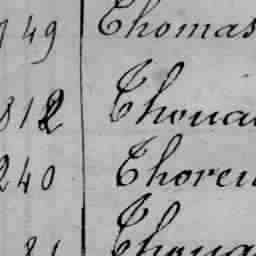 49 Thomas
812 Thoua
240 Thoreu
81 Thoua